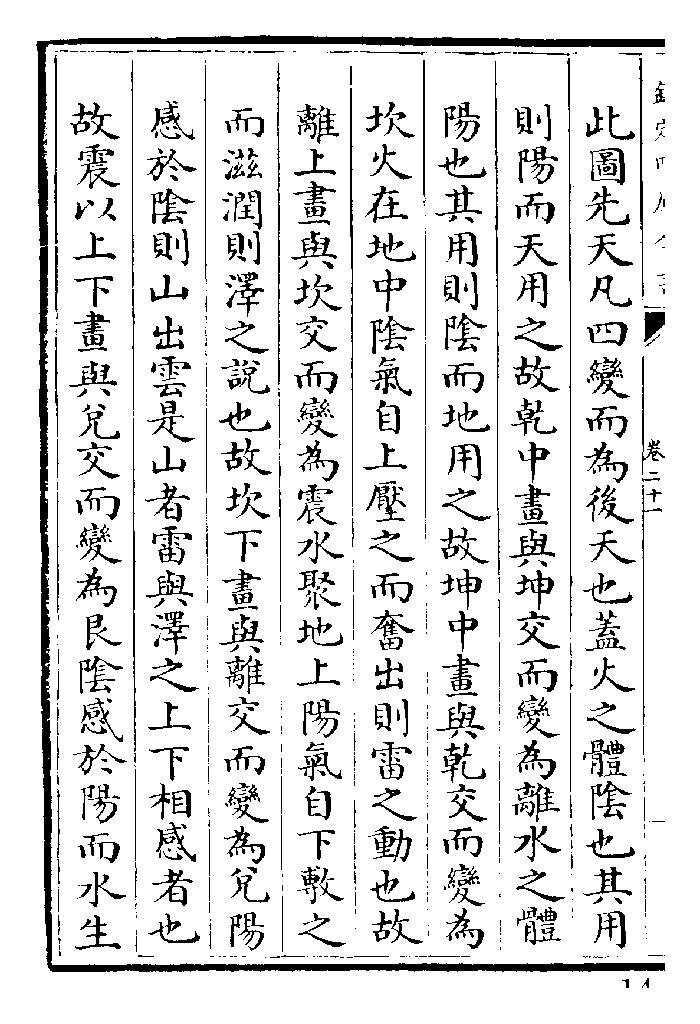 卷二十一
此圖先天凡四變而為後天也蓋火之體陰也其用
則陽而天用之故乾中畫與坤交而變為離水之體
陽也其用則陰而地用之故坤中畫與乾交而變為
坎火在地中陰氣自上壓之而奮出則雷之動也故
離上畫與坎交而變為震水聚地上陽氣自下敷之
而滋潤則澤之說也故坎下畫與離交而變為兌陽
感於陰則山出雲是山者雷與澤之上下相感者也
故震以上下畫與兌交而變為艮陰感於陽而水生